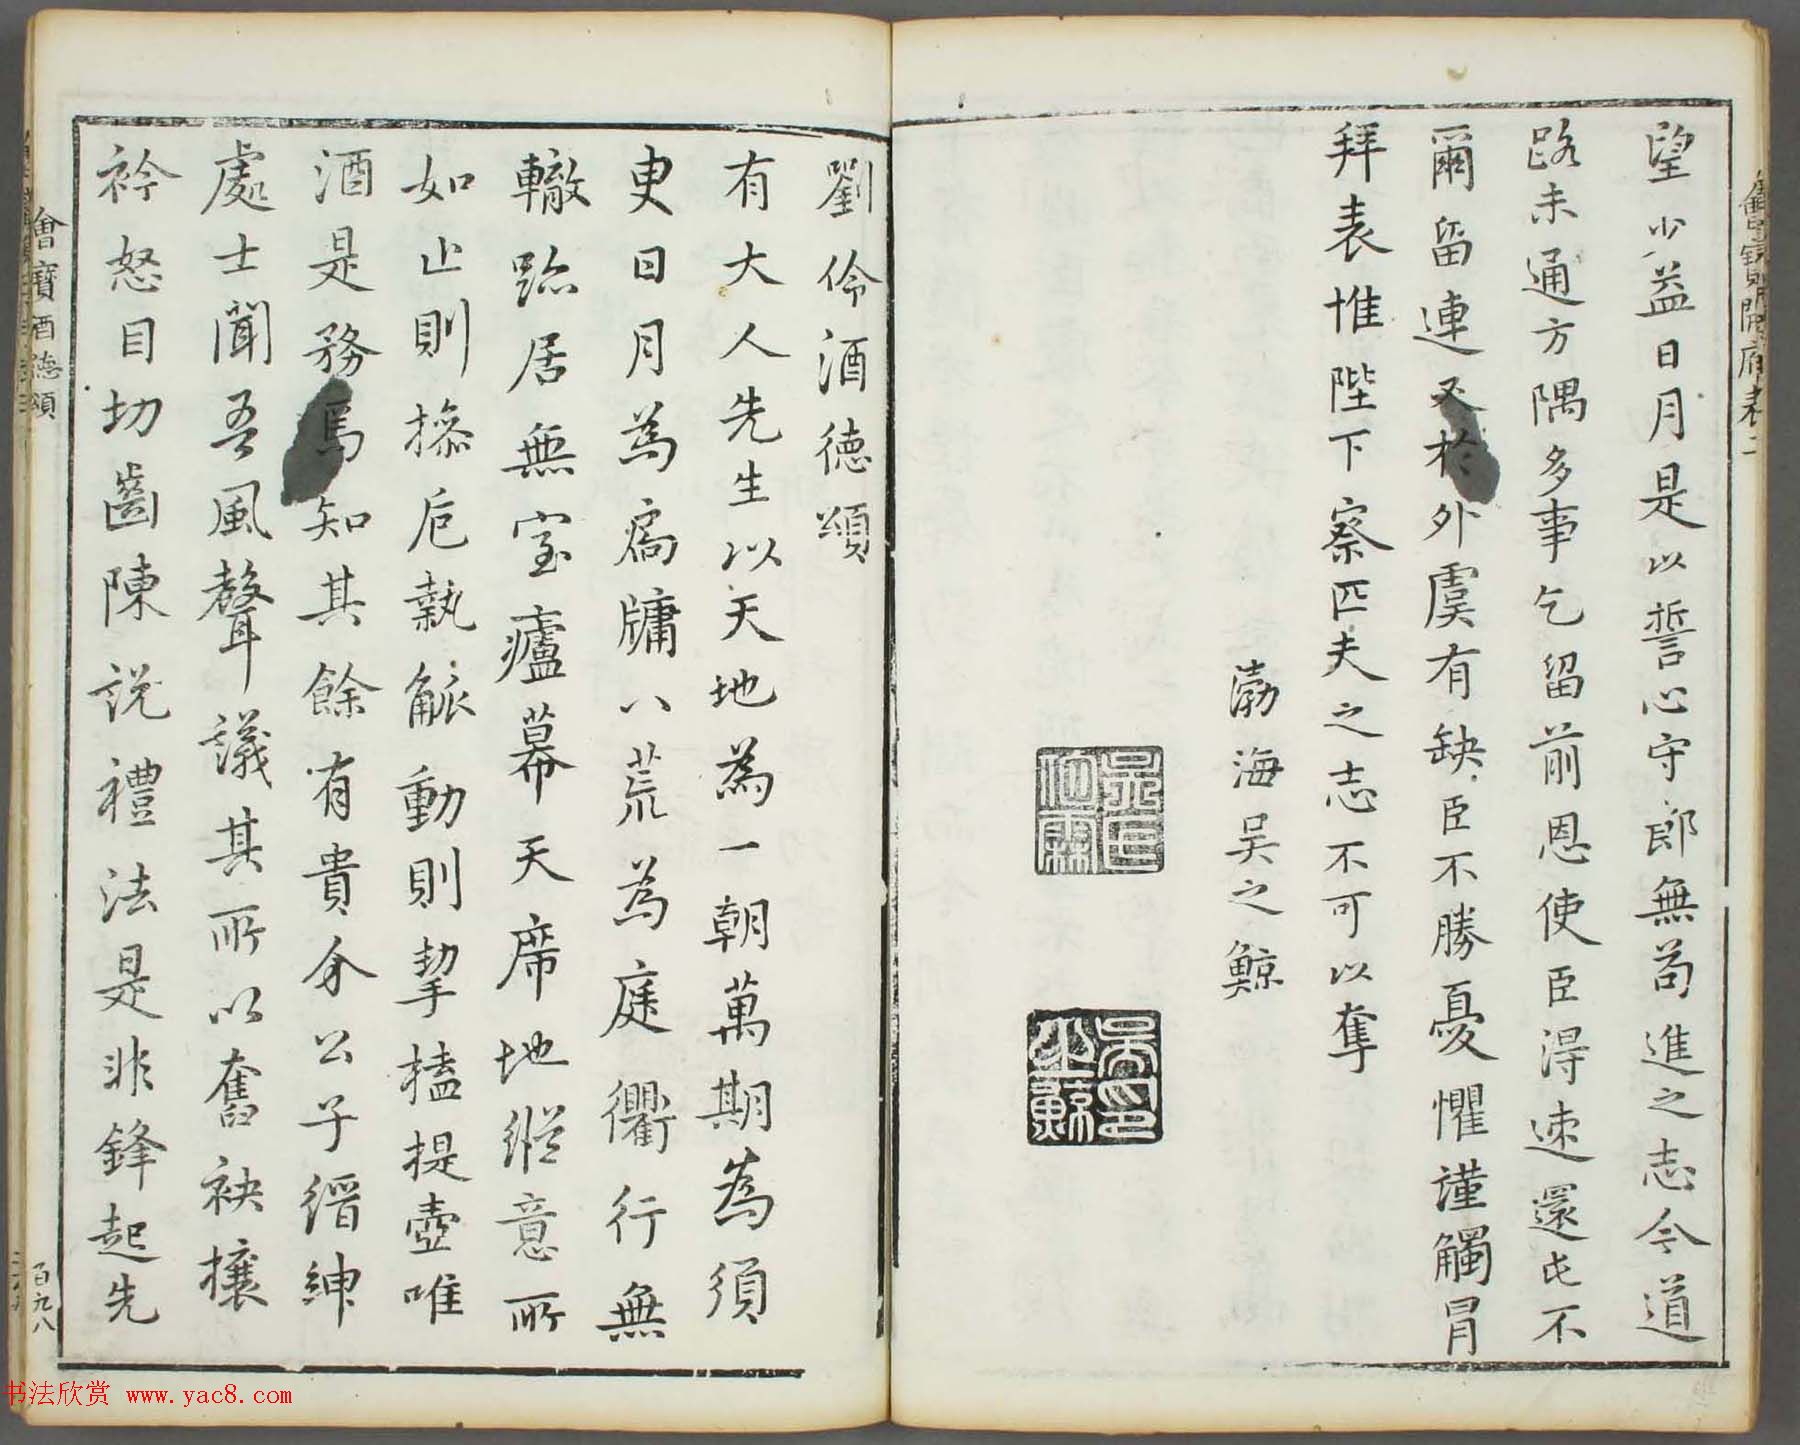 望少益日月是以誓心守郎無苟進之志今道
路未通方隅多事乞留前恩使臣得速還屯不
爾留連又於外虞有缺臣不勝憂懼謹觸冒
拜表惟陛下察匹夫之志不可以奪
渤海吴之鯨
劉伶酒德頌
有大人先生以天地為一朝萬期為須
臾日月為扃牖八荒為庭衢行無
轍跡居無室廬幕天席地縱意所
如止則操卮執觚動則挈榼提壺唯
酒是務焉知其餘有貴介公子縉紳
處士聞吾風聲議其所以奮袂攘
衿怒目切齒陳說禮法是非鋒起先
會寶酒德頌
百九八
书法欣赏 www.yac8.com